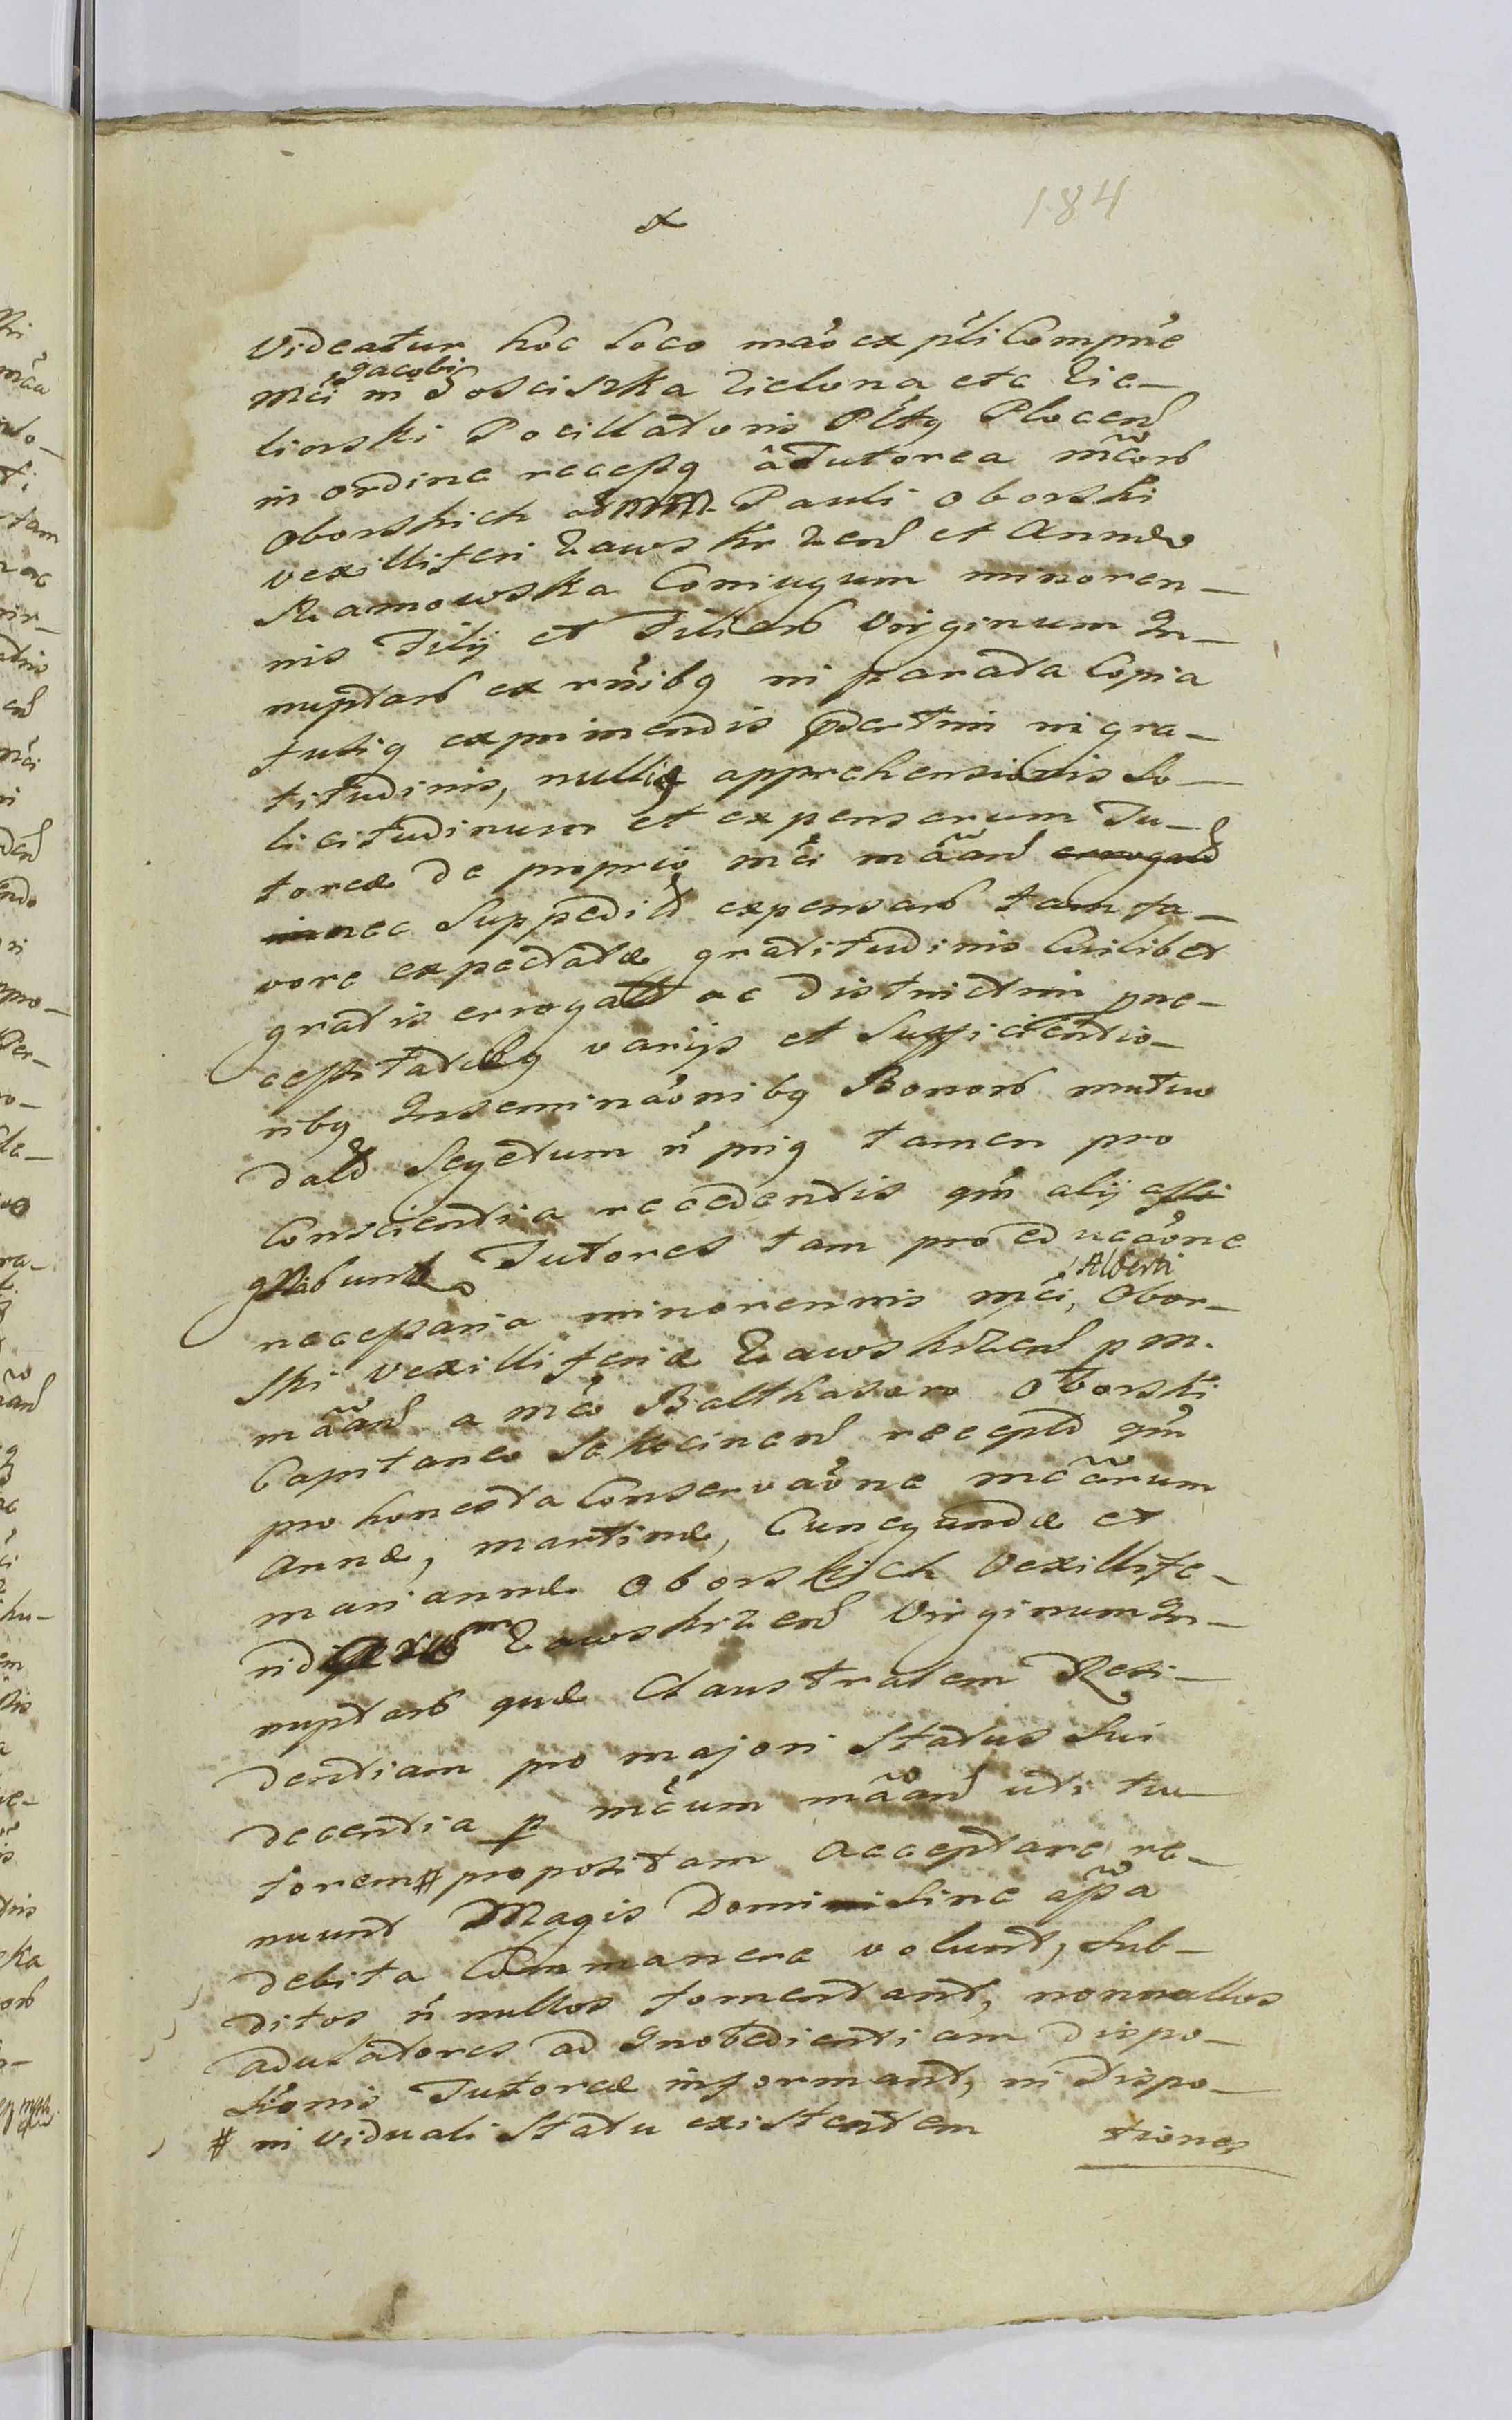 184
Videatur hoc loco mão ex pńli Compńe
Mći Jacobi in Gosciszka Zielona etc Zie-
linski Pocillatoris Pltg Plocens
in ordine recessg â Tutorea mćorb
Oborskich Pauli Oborski
vexilliferi Zawskrzens et Annæ
Ramowska Coniugum minoren-
nis Filij et Filiarb Virginum In-
nuptarb ex rńibg in parata Copia
fusig exprimendis partim ingra-
titudinis, nullig apprehensionis So-
licitudinum et expensarum Tu-
toreæ de proprio mći mãand
nec Suppedit expensarb tam fa-
vore expectatæ gratitudinis Cuilibet
gratis errogatt ac districtim pre-
cessitatibg varijs et Sufficientio-
ribg Inseminaõnibg Bonorb mutuo
datt Segetum ń prig tamen pro
Conscientia recedentis qm alij assi
gnabunt Tutores tam pro educaõne
necessaria minorennis mći, Alberti Obor-
ski vexilliferiæ Zawskrzens p m.
mãand a mćo Balthasaro Oborski
Capitaneo Sekocinens receptt qm
pro honesta Conservaõne mćarum
Annæ, Martinæ, Cunegundæ et
Mariannæ Oborskich Vexillife-
rid Zawskrzens Virginum In-
nuptarb quæ Claustralem Resi-
dentiam pro majori Status Sui
decentia p mćum mãand uti tu-
torem # propositam acceptare re-
nuunt Magis Domi Sine apa
debita Commanere volunt, Sub-
ditos ń nullos fomentant, nonnullos
adulatores ad Inobedientiam dispo-
siõnis Tutoreæ informant, in Dispo-
# in viduali Statu existentem
tiones